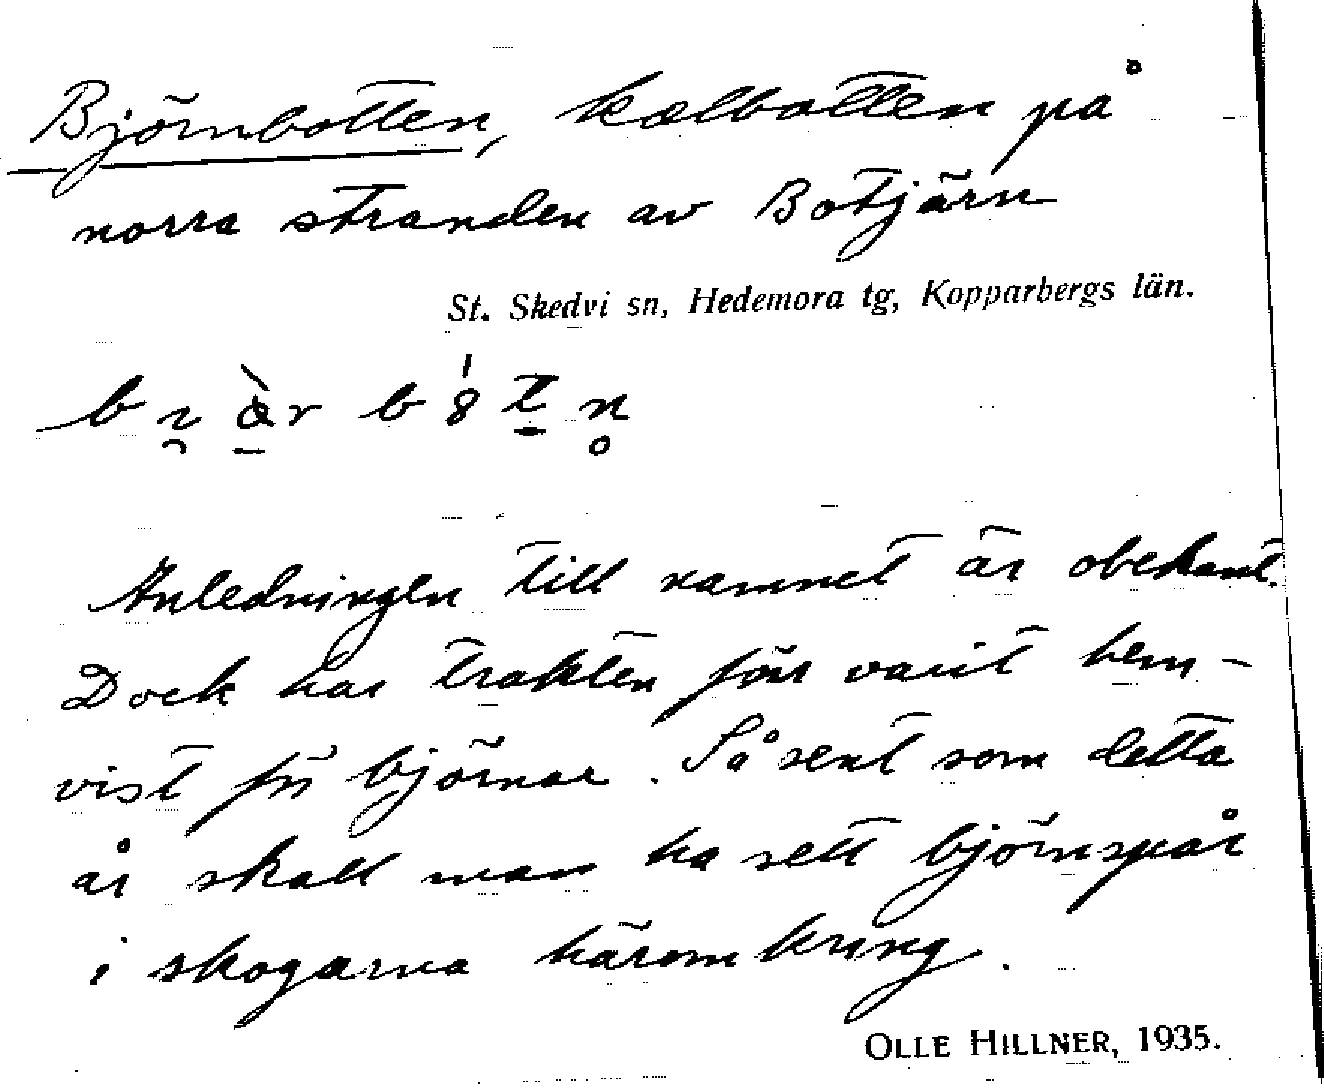 Björnbotten, kolbotten på
norra stranden av Botjärn
St. Skedvi sn, Hedemora tg, Kopparbergs län.
Anledningen till namnet är obekant.
Dock har trakten förr varit hem-
vist för björnar. Så sent som detta
år skall man ha sett björnspår
i skogarna häromkring.
OLLE HILLNER, 1935.